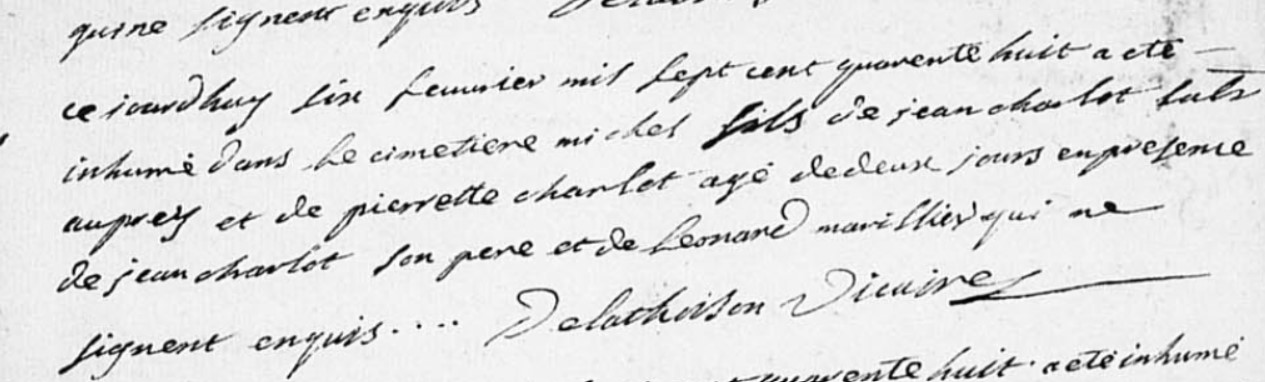 quine signent enquis
ce iourdhuy six feuurier mil sept cent quarente huit a eté
inhumé dans le cimetiere michel fils de jean charlot
aupres et de pierrette charlot agé dedeux jours enpresence
de jean charlot son pere et de leonard marillier qui ne
signent enquis.... Delathoison vicaire
quarente huit a eté inhumé